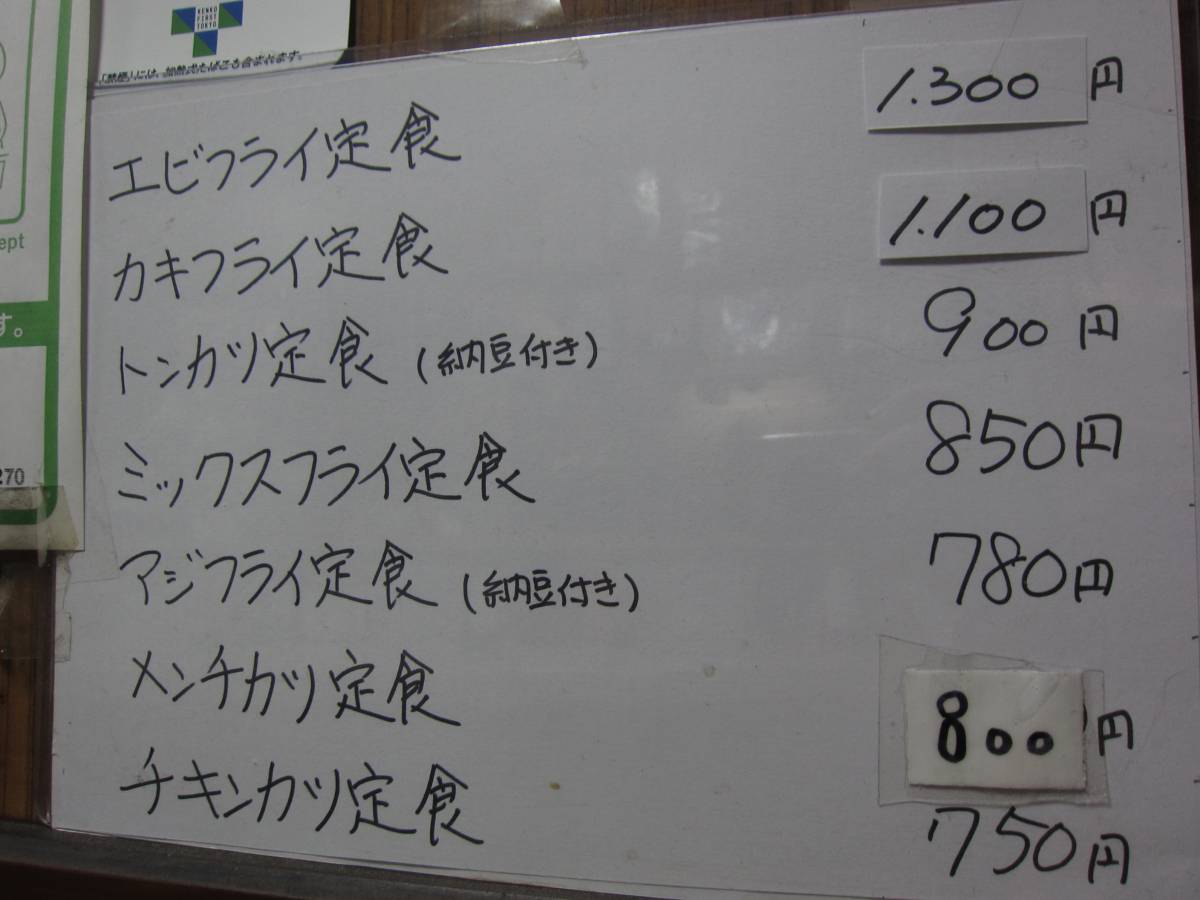 KENKO
FIRST
TOKYO
「禁煙」には、加熱式たばこも含まれます。
ept
す。
270
エビフライ定食 1.300円
カキフライ定食 1.100円
トンカツ定食 (納豆付き) 900円
ミックスフライ定食 850円
アジフライ定食 (納豆付き) 780円
メンチカツ定食 800円
チキンカツ定食 750円